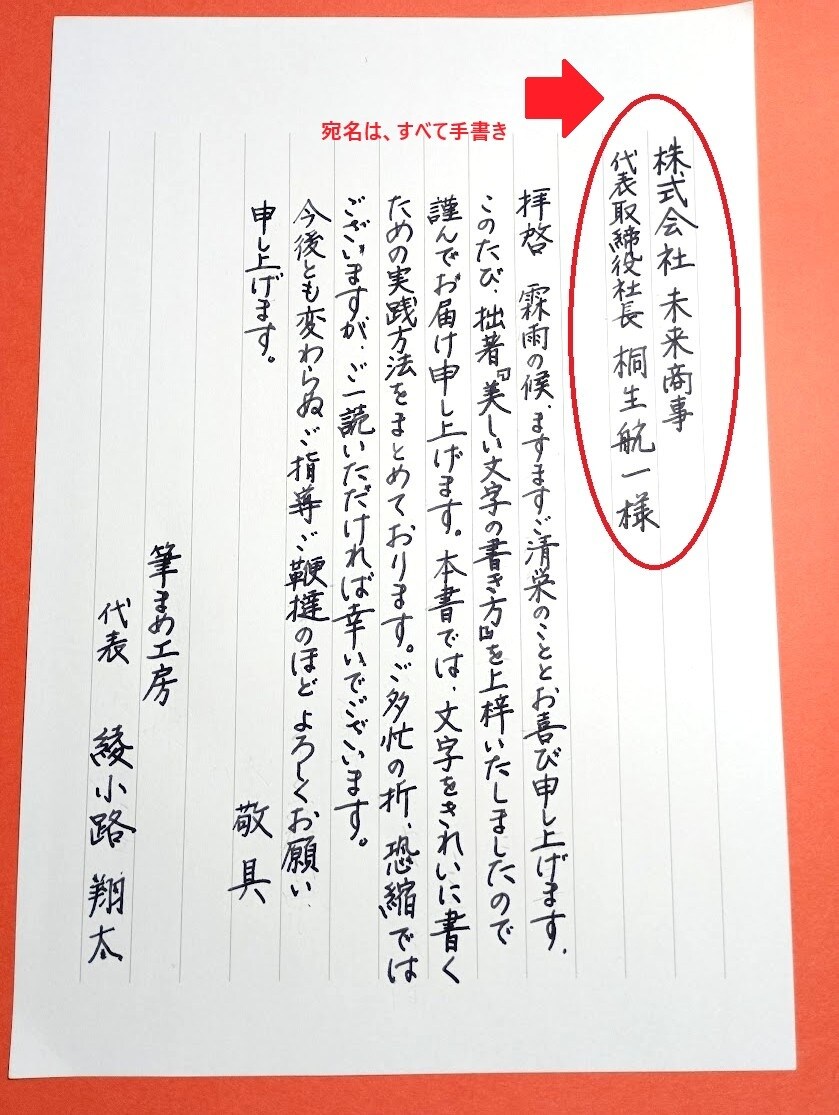 宛名は、すべて手書き
株式会社 未来商事
代表取締役社長 桐生航一様
拝啓 霖雨の候、ますますご清栄のこととお喜び申し上げます。
このたび、拙著『美しい文字の書き方』を上梓いたしましたので
謹んでお届け申し上げます。本書では、文字をきれいに書く
ための実践方法をまとめております。ご多忙の折、恐縮では
ございますが、ご一読いただければ幸いでございます。
今後とも変わらぬご指導ご鞭撻のほどよろしくお願い
申し上げます。
敬具
筆まめ工房
代表 綾小路 翔太